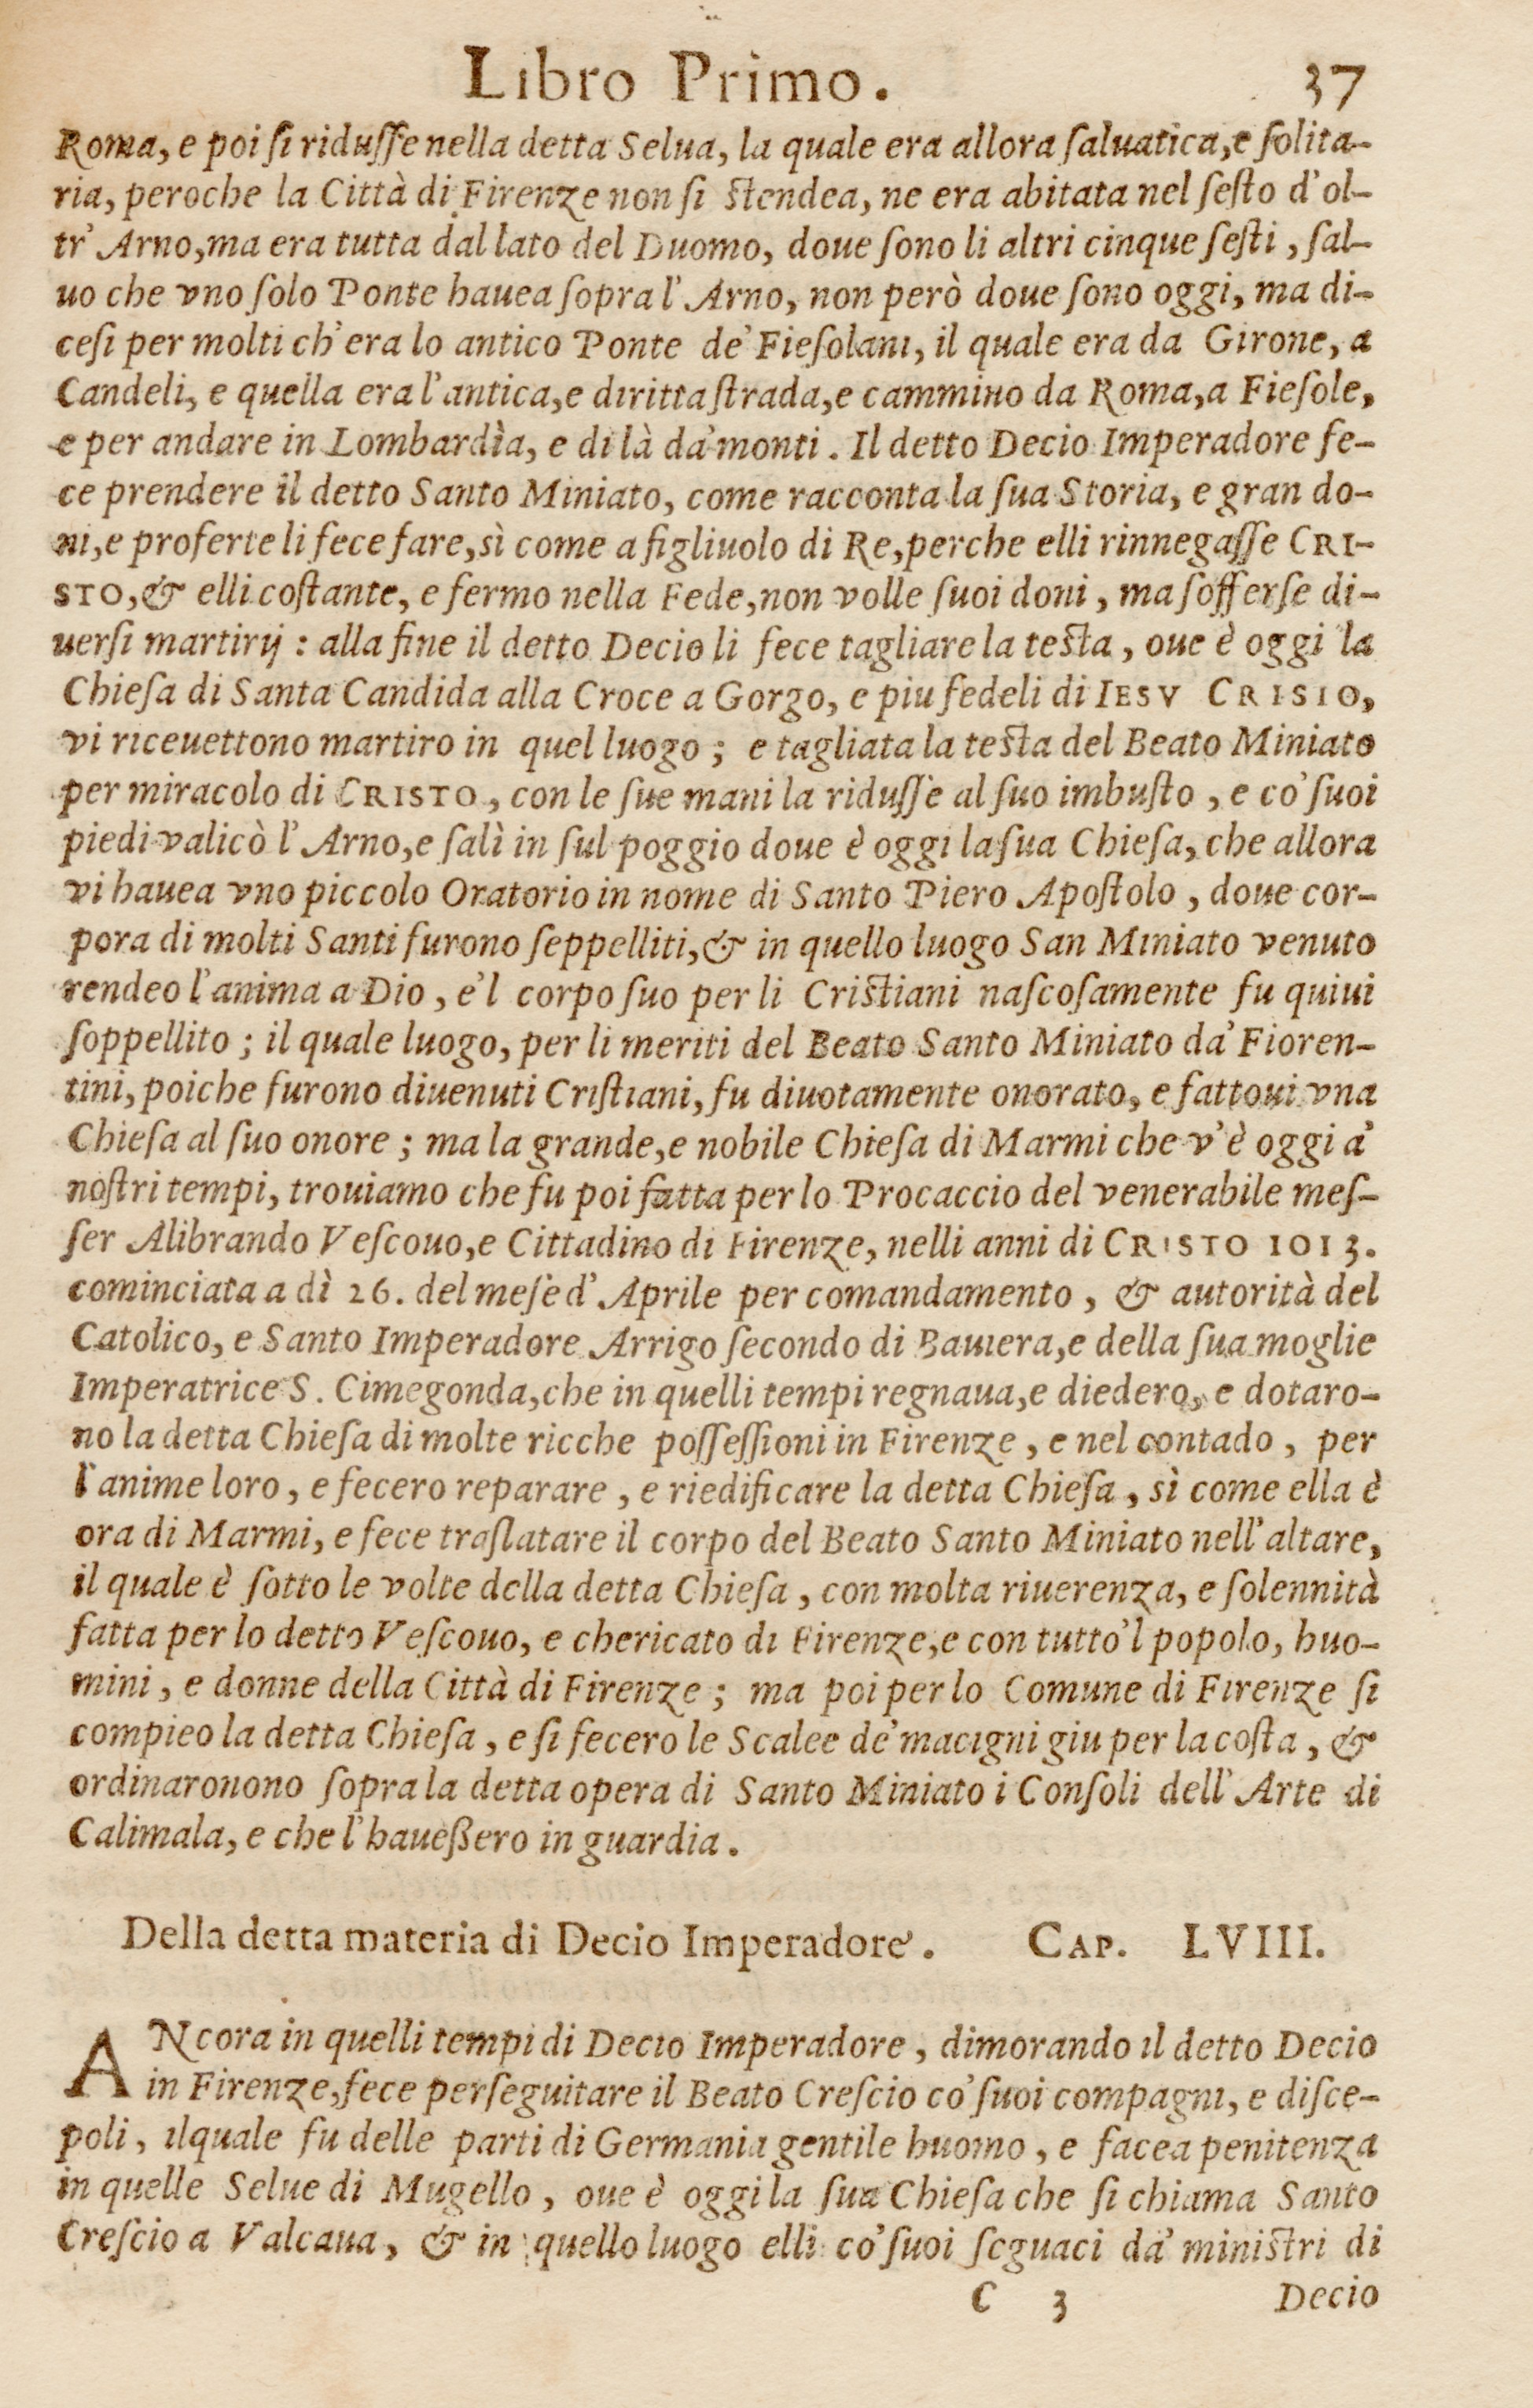 Libro Primo. 37
Roma, e poi ſi riduſſe nella detta Selua, la quale era allora ſaluatica, e ſolita-
ria, peroche la Città di Firenze non ſi ſtendea, ne era abitata nel ſeſto d'ol-
tr' Arno, ma era tutta dal lato del Duomo, doue ſono li altri cinque ſeſti, ſal-
uo che vno ſolo Ponte hauea ſopra l'Arno, non però doue ſono oggi, ma di-
ceſi per molti ch'era lo antico Ponte de' Fieſolani, il quale era da Girone, a
Candeli, e quella era l'antica, e diritta ſtrada, e cammino da Roma, a Fieſole,
e per andare in Lombardìa, e di là da' monti. Il detto Decio Imperadore fe-
ce prendere il detto Santo Miniato, come racconta la ſua Storia, e gran do-
ni, e proferte li fece fare, sì come a figliuolo di Re, perche elli rinnegaſſe CRI-
STO, & elli coſtante, e fermo nella Fede, non volle ſuoi doni, ma ſofferſe di-
uerſi martirij: alla fine il detto Decio li fece tagliare la teſta, oue è oggi la
Chieſa di Santa Candida alla Croce a Gorgo, e piu fedeli di IESV CRISIO,
vi riceuettono martiro in quel luogo; e tagliata la teſta del Beato Miniato
per miracolo di CRISTO, con le ſue mani la riduſſe al ſuo imbuſto, e co' ſuoi
piedi valicò l'Arno, e ſalì in ſul poggio doue è oggi la ſua Chieſa, che allora
vi hauea vno piccolo Oratorio in nome di Santo Piero Apoſtolo, doue cor-
pora di molti Santi furono ſeppelliti, & in quello luogo San Miniato venuto
rendeo l'anima a Dio, e'l corpo ſuo per li Criſtiani naſcoſamente fu quiui
ſoppellito; il quale luogo, per li meriti del Beato Santo Miniato da' Fioren-
tini, poiche furono diuenuti Criſtiani, fu diuotamente onorato, e fattoui vna
Chieſa al ſuo onore; ma la grande, e nobile Chieſa di Marmi che v'è oggi a'
noſtri tempi, trouiamo che fu poi fatta per lo Procaccio del venerabile meſ-
ſer Alibrando Veſcouo, e Cittadino di Firenze, nelli anni di CRISTO 1013.
cominciata a dì 26. del meſe d'Aprile per comandamento, & autorità del
Catolico, e Santo Imperadore Arrigo ſecondo di Bauiera, e della ſua moglie
Imperatrice S. Cimegonda, che in quelli tempi regnaua, e diedero, e dotaro-
no la detta Chieſa di molte ricche poſſeſſioni in Firenze, e nel contado, per
l'anime loro, e fecero reparare, e riedificare la detta Chieſa, sì come ella è
ora di Marmi, e fece traſlatare il corpo del Beato Santo Miniato nell'altare,
il quale è ſotto le volte della detta Chieſa, con molta riuerenza, e ſolennità
fatta per lo detto Veſcouo, e chericato di Firenze, e con tutto'l popolo, huo-
mini, e donne della Città di Firenze; ma poi per lo Comune di Firenze ſi
compieo la detta Chieſa, e ſi fecero le Scalee de' macigni giu per la coſta, &
ordinaronono ſopra la detta opera di Santo Miniato i Conſoli dell'Arte di
Calimala, e che l'haueßero in guardia.
Della detta materia di Decio Imperadore. CAP. LVIII.
ANcora in quelli tempi di Decio Imperadore, dimorando il detto Decio
in Firenze, fece perſeguitare il Beato Creſcio co' ſuoi compagni, e diſce-
poli, ilquale fu delle parti di Germania gentile huomo, e facea penitenza
in quelle Selue di Mugello, oue è oggi la ſua Chieſa che ſi chiama Santo
Creſcio a Valcaua, & in quello luogo elli co' ſuoi ſeguaci da' miniſtri di
C 3 Decio